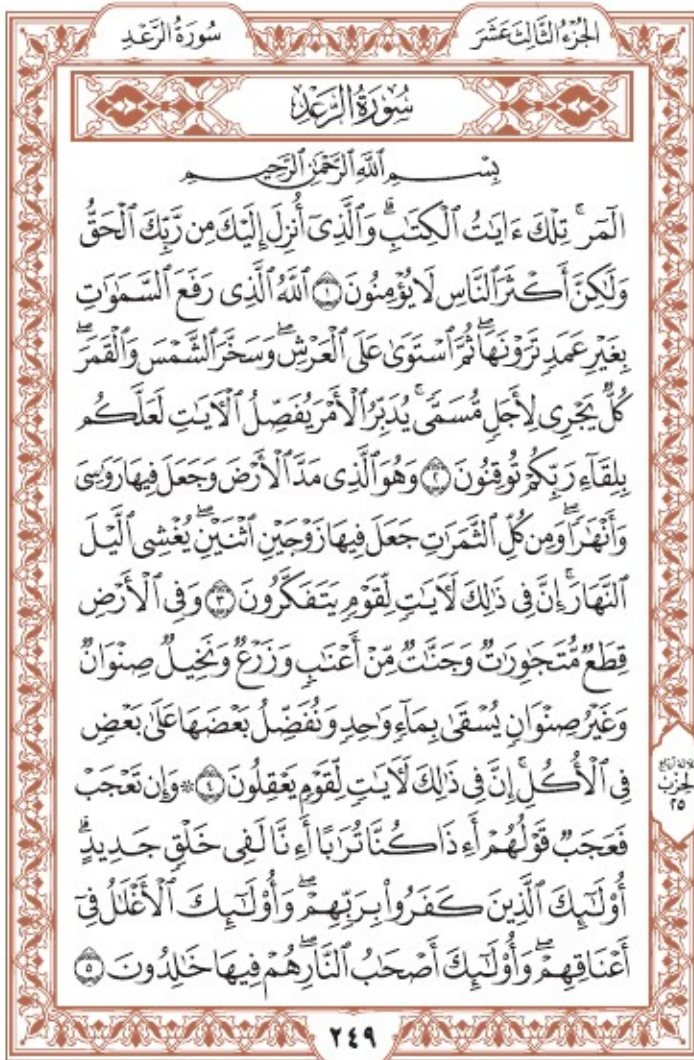 الجزء الثالث عشر
سورة الرعد
سُورَةُ الرَّعْدِ
بِسْمِ ٱللَّهِ ٱلرَّحْمَٰنِ ٱلرَّحِيمِ
الٓمٓرۚ تِلْكَ ءَايَٰتُ ٱلْكِتَٰبِۗ وَٱلَّذِىٓ أُنزِلَ إِلَيْكَ مِن رَّبِّكَ ٱلْحَقُّ
وَلَٰكِنَّ أَكْثَرَ ٱلنَّاسِ لَا يُؤْمِنُونَ ١ ٱللَّهُ ٱلَّذِى رَفَعَ ٱلسَّمَٰوَٰتِ
بِغَيْرِ عَمَدٍ تَرَوْنَهَاۖ ثُمَّ ٱسْتَوَىٰ عَلَى ٱلْعَرْشِۖ وَسَخَّرَ ٱلشَّمْسَ وَٱلْقَمَرَۖ
كُلٌّ يَجْرِى لِأَجَلٍ مُّسَمًّىۚ يُدَبِّرُ ٱلْأَمْرَ يُفَصِّلُ ٱلْءَايَٰتِ لَعَلَّكُم
بِلِقَآءِ رَبِّكُمْ تُوقِنُونَ ٢ وَهُوَ ٱلَّذِى مَدَّ ٱلْأَرْضَ وَجَعَلَ فِيهَا رَوَٰسِىَ
وَأَنْهَٰرًاۖ وَمِن كُلِّ ٱلثَّمَرَٰتِ جَعَلَ فِيهَا زَوْجَيْنِ ٱثْنَيْنِۖ يُغْشِى ٱلَّيْلَ
ٱلنَّهَارَۚ إِنَّ فِى ذَٰلِكَ لَءَايَٰتٍ لِّقَوْمٍ يَتَفَكَّرُونَ ٣ وَفِى ٱلْأَرْضِ
قِطَعٌ مُّتَجَٰوِرَٰتٌ وَجَنَّٰتٌ مِّنْ أَعْنَٰبٍ وَزَرْعٌ وَنَخِيلٌ صِنْوَانٌ
وَغَيْرُ صِنْوَانٍ يُسْقَىٰ بِمَآءٍ وَٰحِدٍ وَنُفَضِّلُ بَعْضَهَا عَلَىٰ بَعْضٍ
فِى ٱلْأُكُلِۚ إِنَّ فِى ذَٰلِكَ لَءَايَٰتٍ لِّقَوْمٍ يَعْقِلُونَ ٤ ۞ وَإِن تَعْجَبْ
فَعَجَبٌ قَوْلُهُمْ أَءِذَا كُنَّا تُرَٰبًا أَءِنَّا لَفِى خَلْقٍ جَدِيدٍۗ
أُو۟لَٰٓئِكَ ٱلَّذِينَ كَفَرُوا۟ بِرَبِّهِمْۖ وَأُو۟لَٰٓئِكَ ٱلْأَغْلَٰلُ فِىٓ
أَعْنَاقِهِمْۖ وَأُو۟لَٰٓئِكَ أَصْحَٰبُ ٱلنَّارِۖ هُمْ فِيهَا خَٰلِدُونَ ٥
الحزب
٢٥
٢٤٩